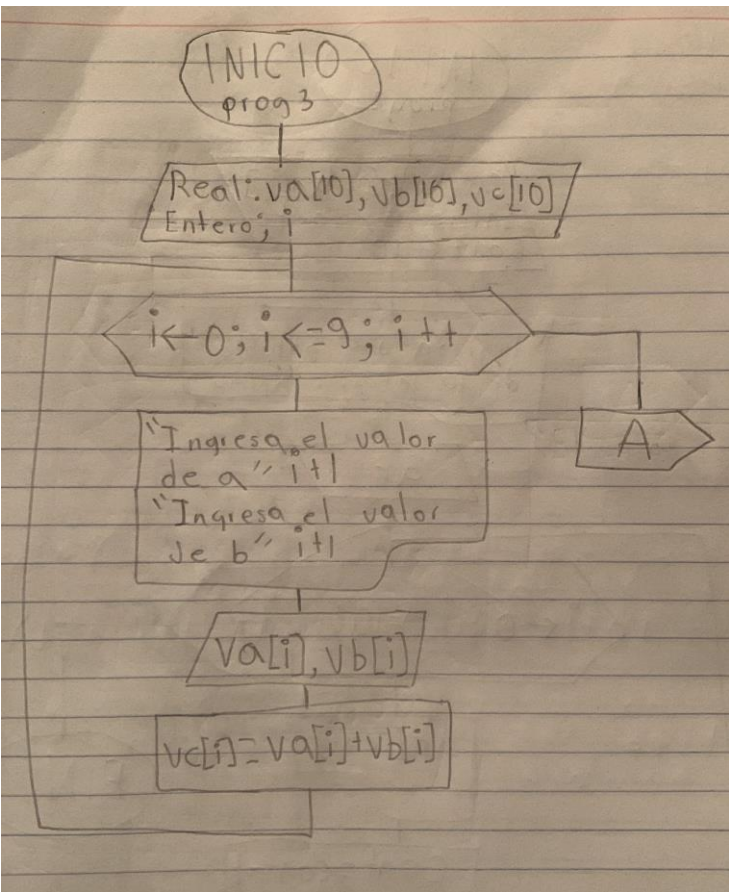 INICIO
prog 3
Real: va[10], vb[10], vc[10]
Entero; i
i<-0; i<=9; i++
A
"Ingresa el valor
de a" i+1
"Ingresa el valor
de b" i+1
va[i], vb[i]
vc[i]=va[i]+vb[i]